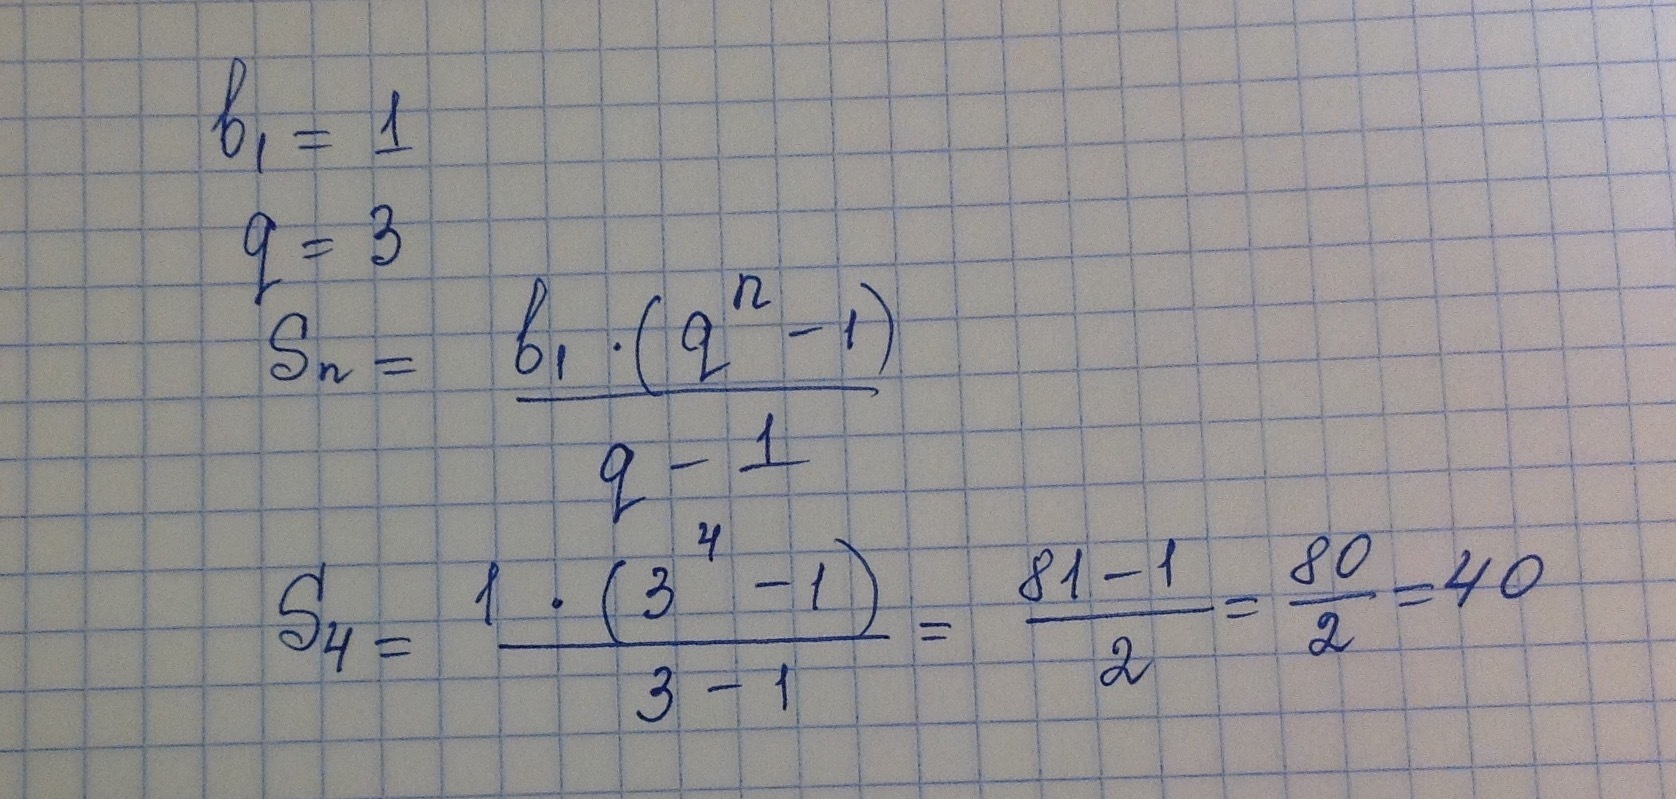 b₁ = 1
q = 3
Sₙ = b₁ · (qⁿ - 1) / q - 1
S₄ = 1 · (3⁴ - 1) / 3 - 1 = 81 - 1 / 2 = 80 / 2 = 40